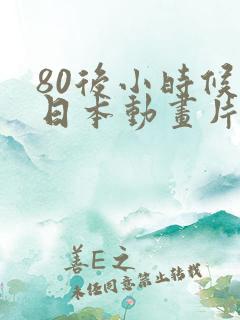 80後小時候
日本動畫片
善E之
未任同意禁止轉載